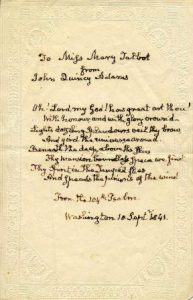 To Miss Mary Talbot
from
John Quincy Adams
Oh! Lord my God! how great art thou!
With honour and with glory crown'd
Light's dazzling splendours veil thy brow
And gird the universe around.
Beneath the deep, above the skies
Thy of Space are
Thy Spirit on the Tempest flies
And Speeds the pinions of the wind
From the 104th Psalm.
Washington 10 Septr 1841.